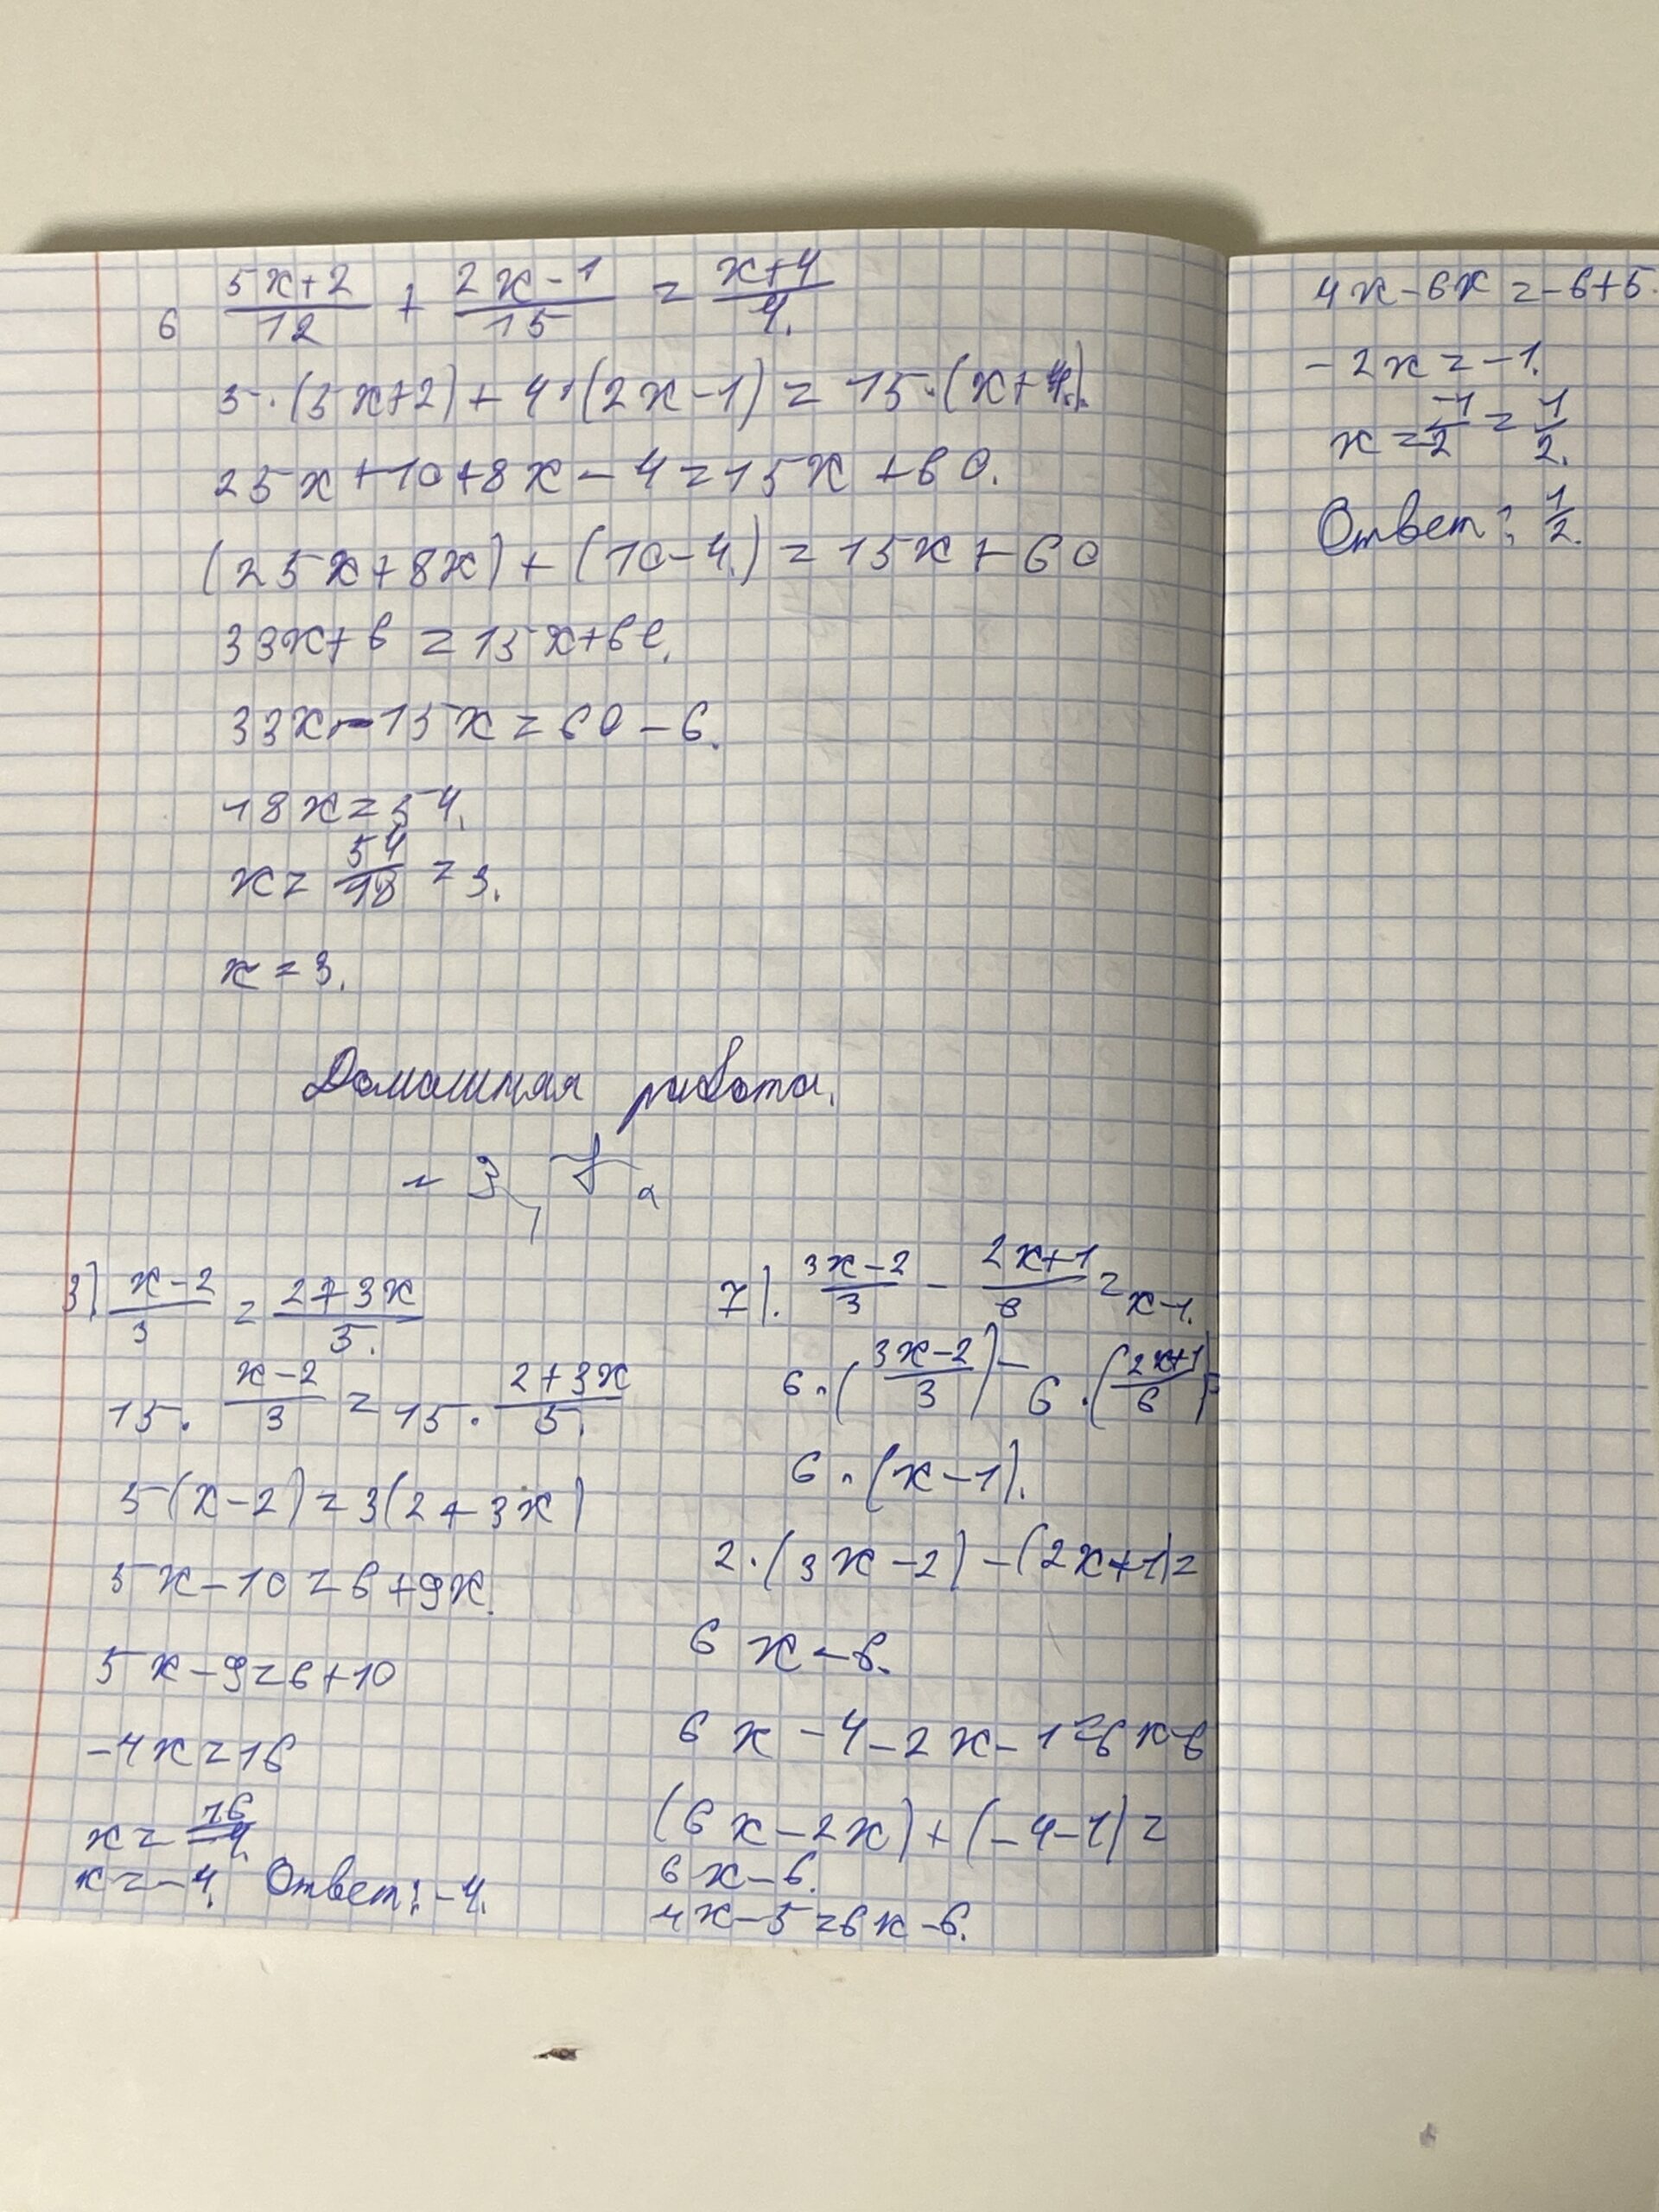 6 (5x+2)/12 + (2x-1)/15 = (x+4)/4.
5·(5x+2)+4·(2x-1)=15·(x+4).
25x+10+8x-4=15x+60.
(25x+8x)+(10-4)=15x+60
33x+6=15x+60.
33x-15x=60-6.
18x=54.
x=54/18=3.
x=3.
Домашняя работа.
3) (x-2)/3=(2+3x)/5.
15·(x-2)/3=15·(2+3x)/5.
5(x-2)=3(2+3x)
5x-10=6+9x.
5x-9=6+10
-4x=16
x=16/-4.
x=-4. Ответ: -4.
7). (3x-2)/3-(2x+1)/6=x-1.
6·((3x-2)/3)-6·((2x+1)/6)=
6·(x-1).
2·(3x-2)-(2x+1)=
6x-6.
6x-4-2x-1=6x-6
(6x-2x)+(-4-1)=
6x-6.
4x-5=6x-6.
4x-6x=-6+5.
-2x=-1.
x=-1/2=1/2.
Ответ: 1/2.